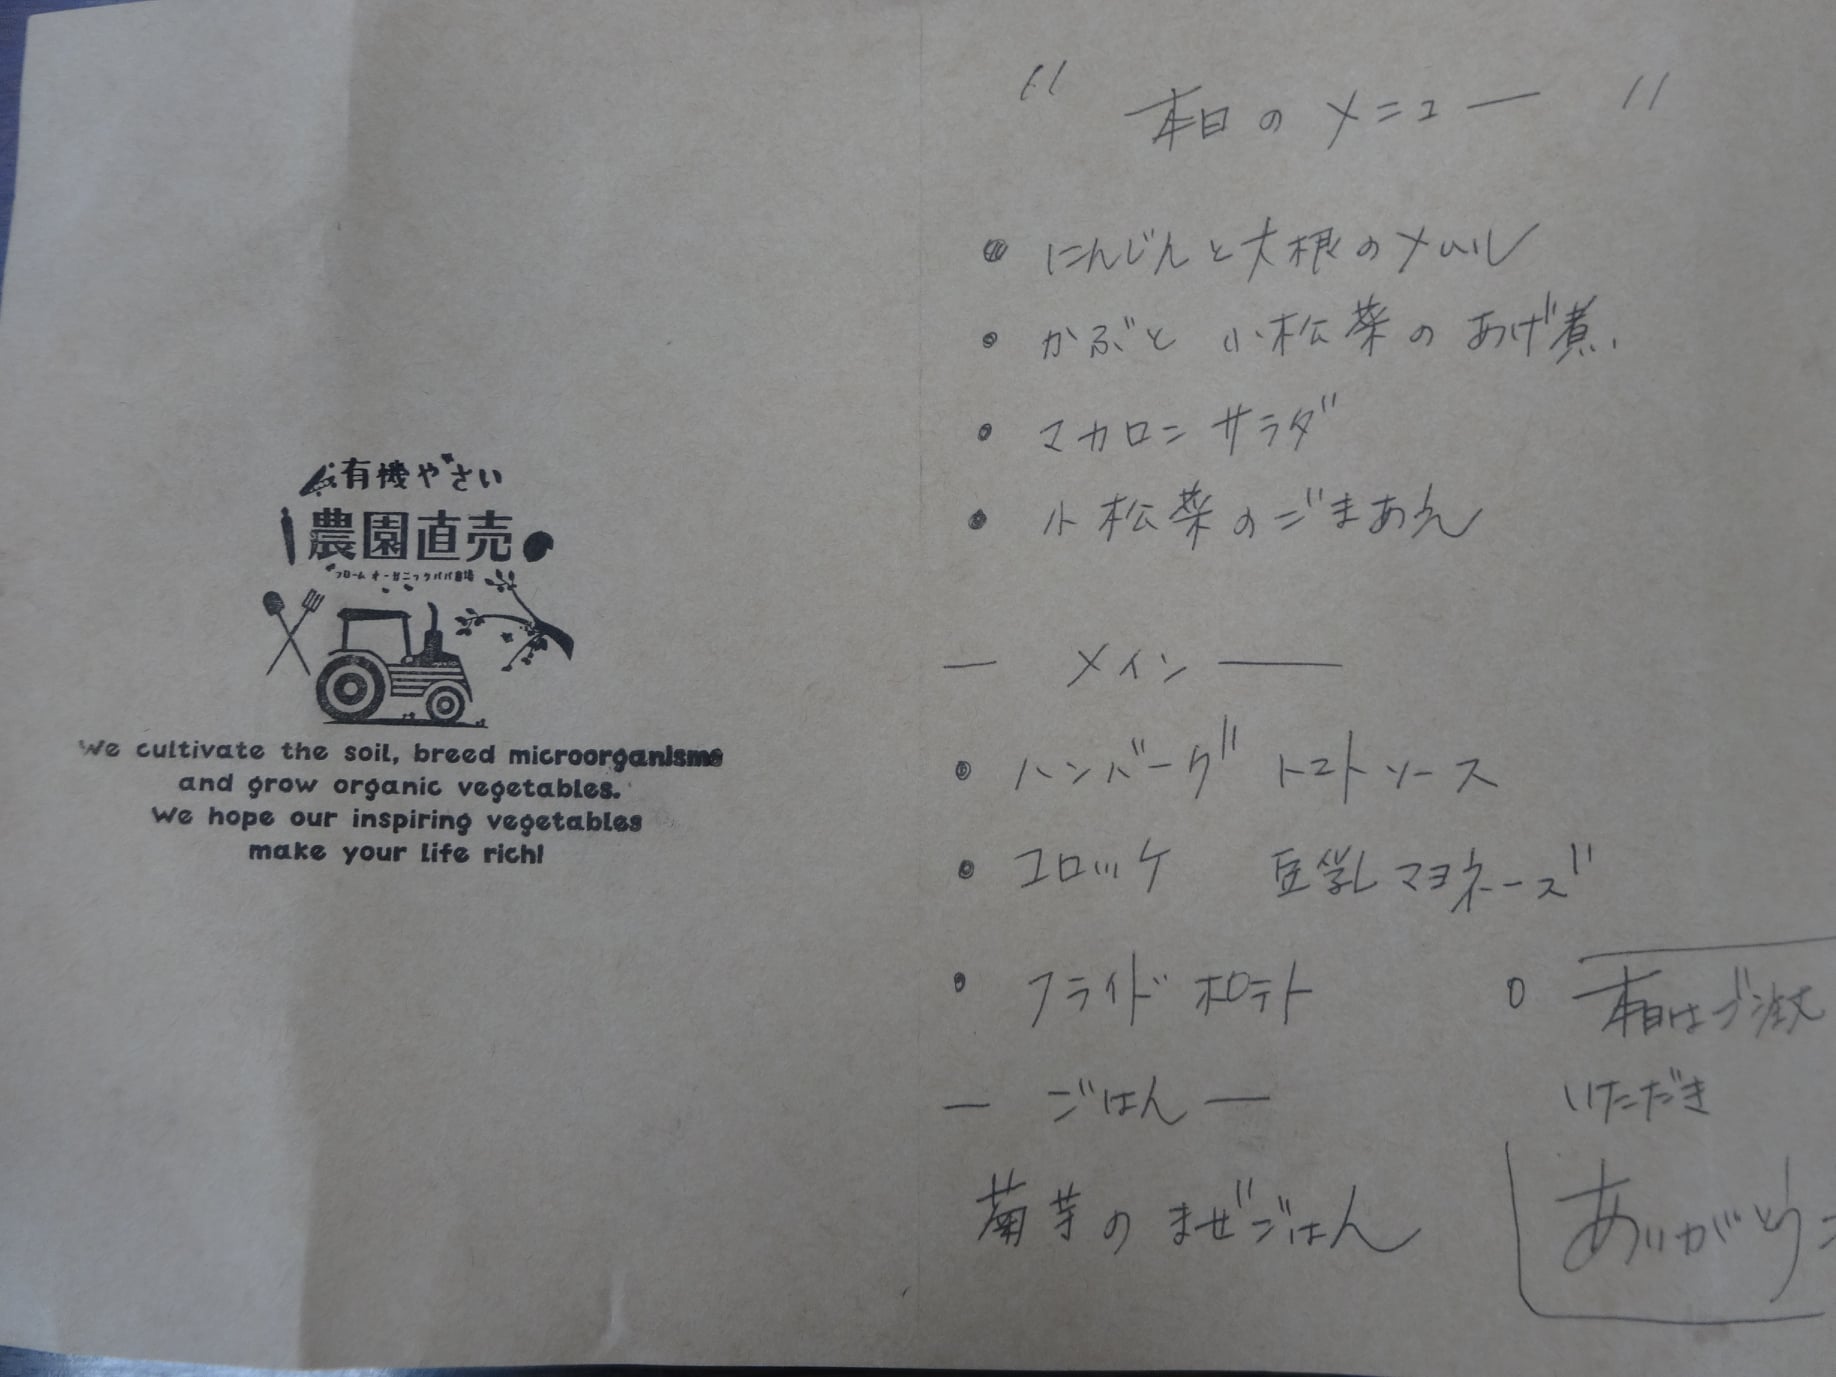 有機やさい
農園直売
フローム オーガニックパパ農場
We cultivate the soil, breed microorganisms
and grow organic vegetables.
We hope our inspiring vegetables
make your life rich!
" 本日のメニュー "
• にんじんと大根のナムル
• かぶと 小松菜の あげ煮.
• マカロニ サラダ
• 小松菜のごまあえ
— メイン —
• ハンバーグ トマトソース
• コロッケ 豆乳マヨネーズ
• フライドポテト
— ごはん —
菊芋の まぜごはん
○ 本日はご注文
いただき
ありがとう